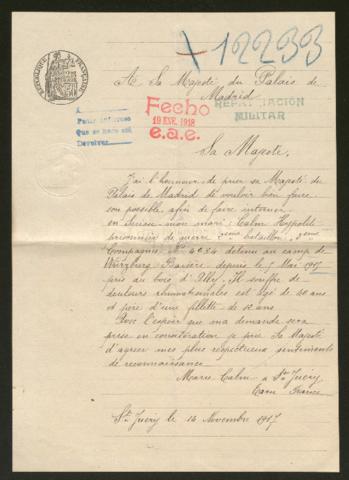 RÉPUBLIQUE FRANÇAISE
+12233
A Sa Majesté du Palais de
Madrid
A
Petit
Que se hace así
Devolver
Fecho
19 ENE. 1918
e.a.e.
REPATRIACIÓN
MILITAR
Sa Majesté,
J'ai l'honneur de prier sa Majesté du
Palais de Madrid de vouloir bien faire
son possible, afin de faire interner
en Suisse mon mari, Calm Hyppolite
prisonnier de guerre bataillon,
Compagnie No détenu au camp de
Würzburg Bavière depuis le 5 Mai 1915
pris au bois d'Ailly. Il souffre de
douleurs rhumatismales est âgé de 40 ans
et père d'une fillette de ans
Avec l'espoir que ma demande sera
prise en considération je prie Sa Majesté
d'agréer mes plus respectueux sentiments
de reconnaissance
Marie Calm à St Juéry
Tarn France
St Juéry le 14 Novembre 1917